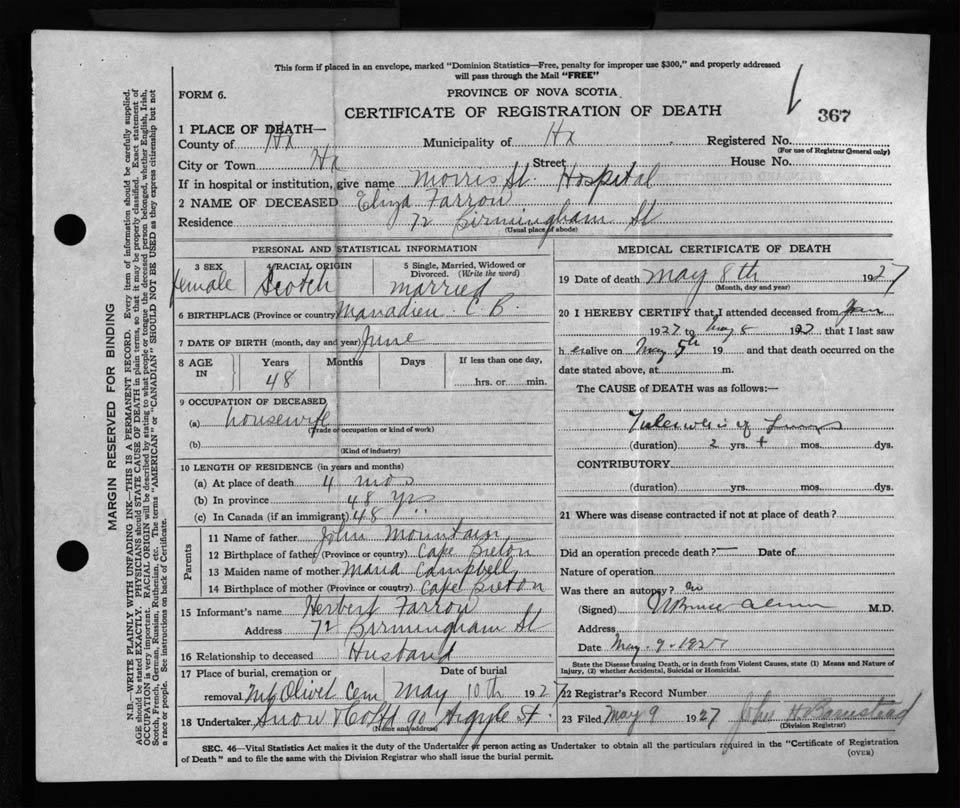 This form if placed in an envelope, marked "Dominion Statistics—Free, penalty for improper use $300," and properly addressed
will pass through the Mail "FREE"
FORM 6.
PROVINCE OF NOVA SCOTIA
CERTIFICATE OF REGISTRATION OF DEATH
367
1 PLACE OF DEATH—
County of Hx Municipality of Hx Registered No.
(For use of Registrar General only)
City or Town Hx Street House No.
If in hospital or institution, give name Morris St. Hospital
2 NAME OF DECEASED Eliza Farrow
Residence 72 Birmingham St
(Usual place of abode)
PERSONAL AND STATISTICAL INFORMATION
3 SEX 4 RACIAL ORIGIN 5 Single, Married, Widowed or Divorced. (Write the word)
female Scotch married
6 BIRTHPLACE (Province or country) Manadieu C. B.
7 DATE OF BIRTH (month, day and year) June
8 AGE IN Years Months Days If less than one day,
48 hrs. or min.
9 OCCUPATION OF DECEASED
(a) housewife
(Trade or occupation or kind of work)
(b)
(Kind of industry)
10 LENGTH OF RESIDENCE (in years and months)
(a) At place of death 4 mos
(b) In province 48 yrs
(c) In Canada (if an immigrant) 48
Parents
11 Name of father John Mountain
12 Birthplace of father (Province or country) Cape Breton
13 Maiden name of mother Maria Campbell
14 Birthplace of mother (Province or country) Cape Breton
15 Informant's name Herbert Farrow
Address 72 Birmingham St
16 Relationship to deceased Husband
17 Place of burial, cremation or removal Mt Olivet Cem Date of burial May 10th 1927
18 Undertaker Snow & Co Ltd 90 Argyle St.
(Name and address)
MEDICAL CERTIFICATE OF DEATH
19 Date of death May 8th 1927
(Month, day and year)
20 I HEREBY CERTIFY that I attended deceased from
1927 to May 8 1927 that I last saw
h er alive on May 5th 19 and that death occurred on the
date stated above, at m.
The CAUSE of DEATH was as follows:—
Tuberculosis of Lungs
(duration) 2 yrs. + mos. dys.
CONTRIBUTORY
(duration) yrs. mos. dys.
21 Where was disease contracted if not at place of death?
Did an operation precede death? — Date of
Nature of operation
Was there an autopsy? no
(Signed) M.D.
Address
Date May. 9. 1927
State the Disease causing Death, or in death from Violent Causes, state (1) Means and Nature of
Injury, (2) whether Accidental, Suicidal or Homicidal.
22 Registrar's Record Number
23 Filed May 9 1927 John H Barnstead
(Division Registrar)
SEC. 46—Vital Statistics Act makes it the duty of the Undertaker or person acting as Undertaker to obtain all the particulars required in the "Certificate of Registration
of Death" and to file the same with the Division Registrar who shall issue the burial permit.
(OVER)
MARGIN RESERVED FOR BINDING
N.B.—WRITE PLAINLY WITH UNFADING INK—THIS IS A PERMANENT RECORD. Every item of information should be carefully supplied.
AGE should be stated EXACTLY. PHYSICIANS should STATE CAUSE OF DEATH in plain terms, so that it may be properly classified. Exact statement of
OCCUPATION is very important. RACIAL ORIGIN will be described by stating to what people or tongue the deceased person belonged, whether English, Irish,
Scotch, French, German, Russian, Ruthenian, etc. The terms "AMERICAN" or "CANADIAN" SHOULD NOT BE USED as they express citizenship but not
a race or people. See instructions on back of Certificate.